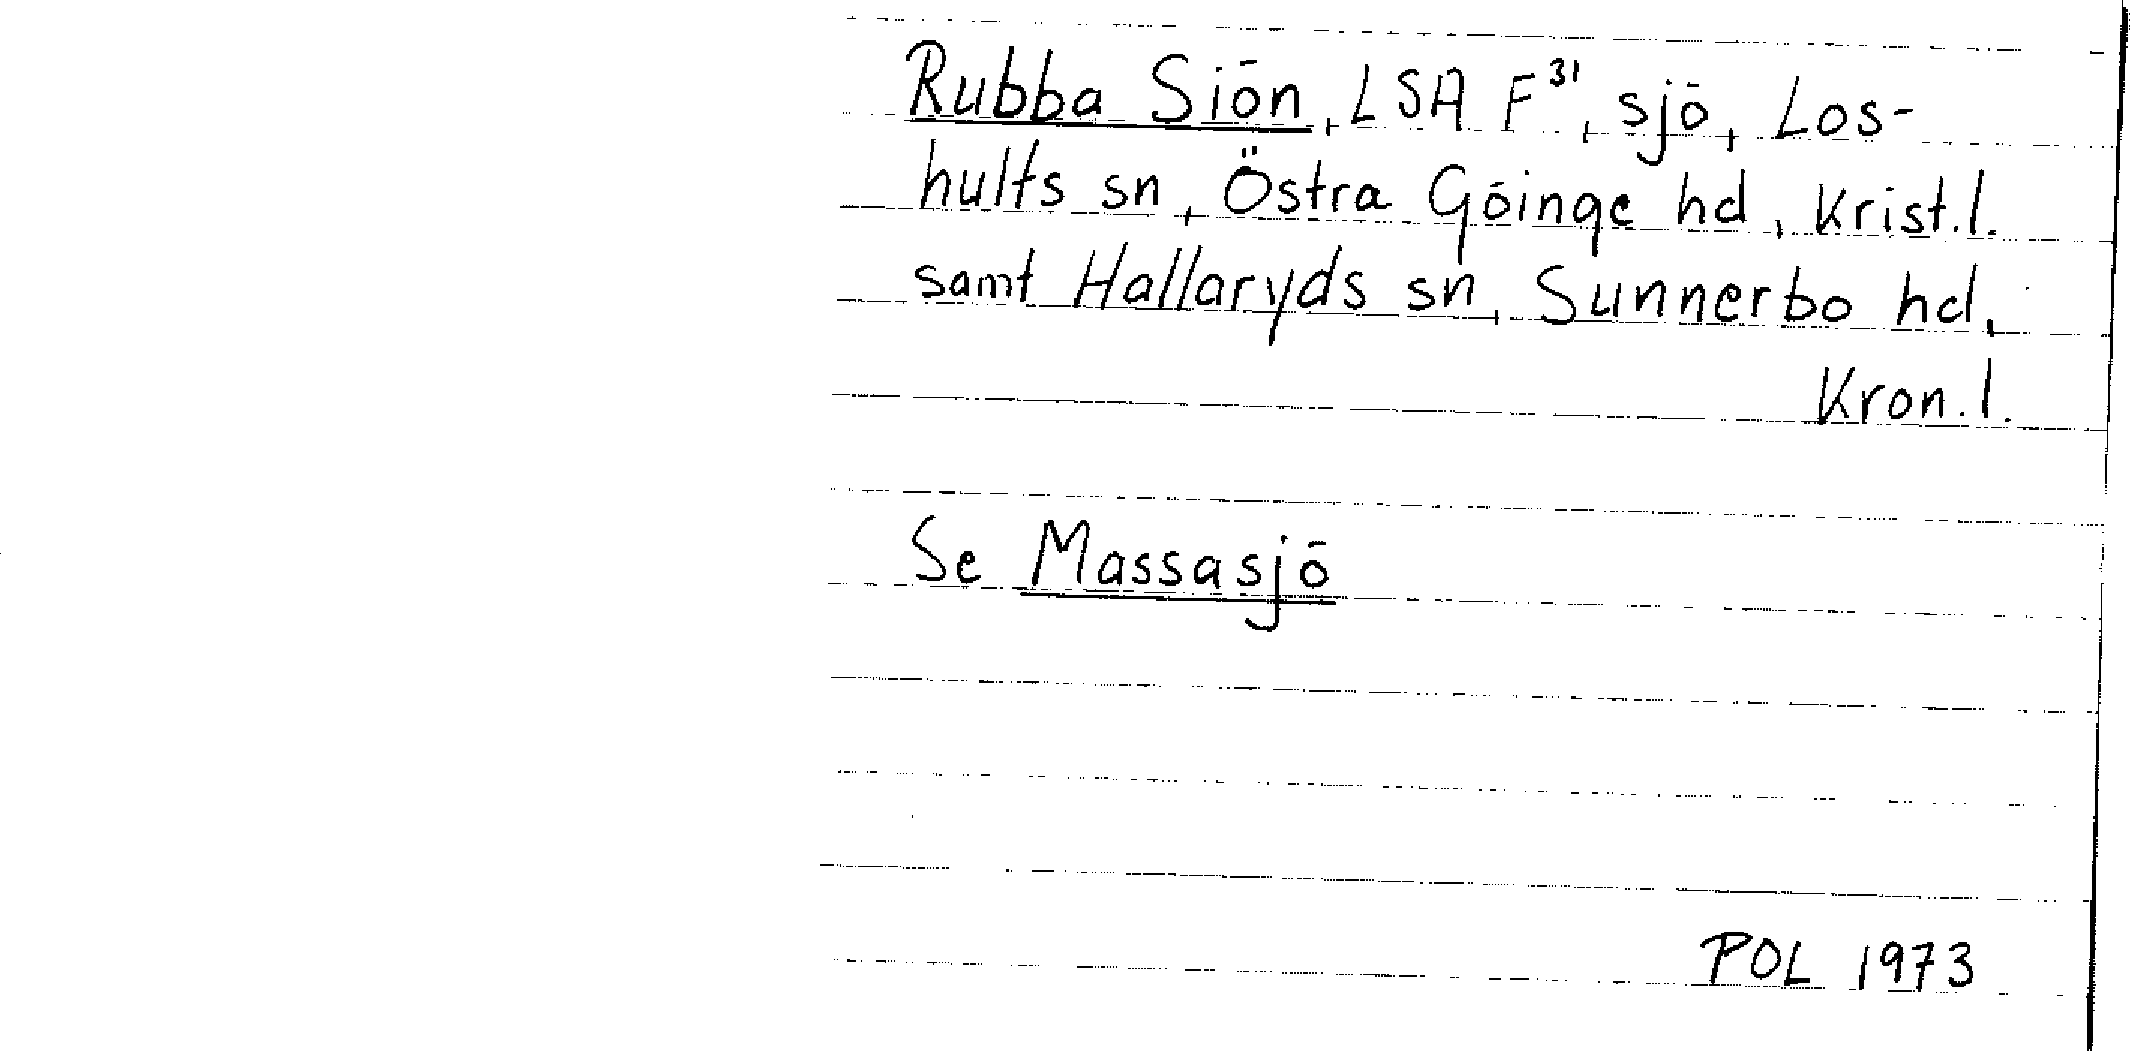 Rubba Siön, LSA F³¹, sjö, Los-
hults sn, Östra Göinge hd, Krist.l.
samt Hallaryds sn, Sunnerbo hd,
Kron.l.
Se Massasjö
POL 1973